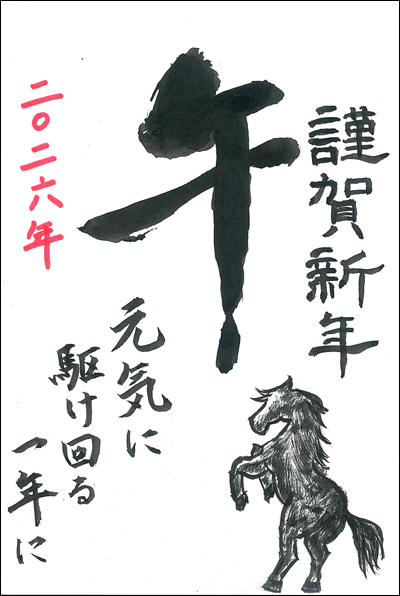 謹賀新年
午
二〇二六年
元気に
駆け回る
一年に